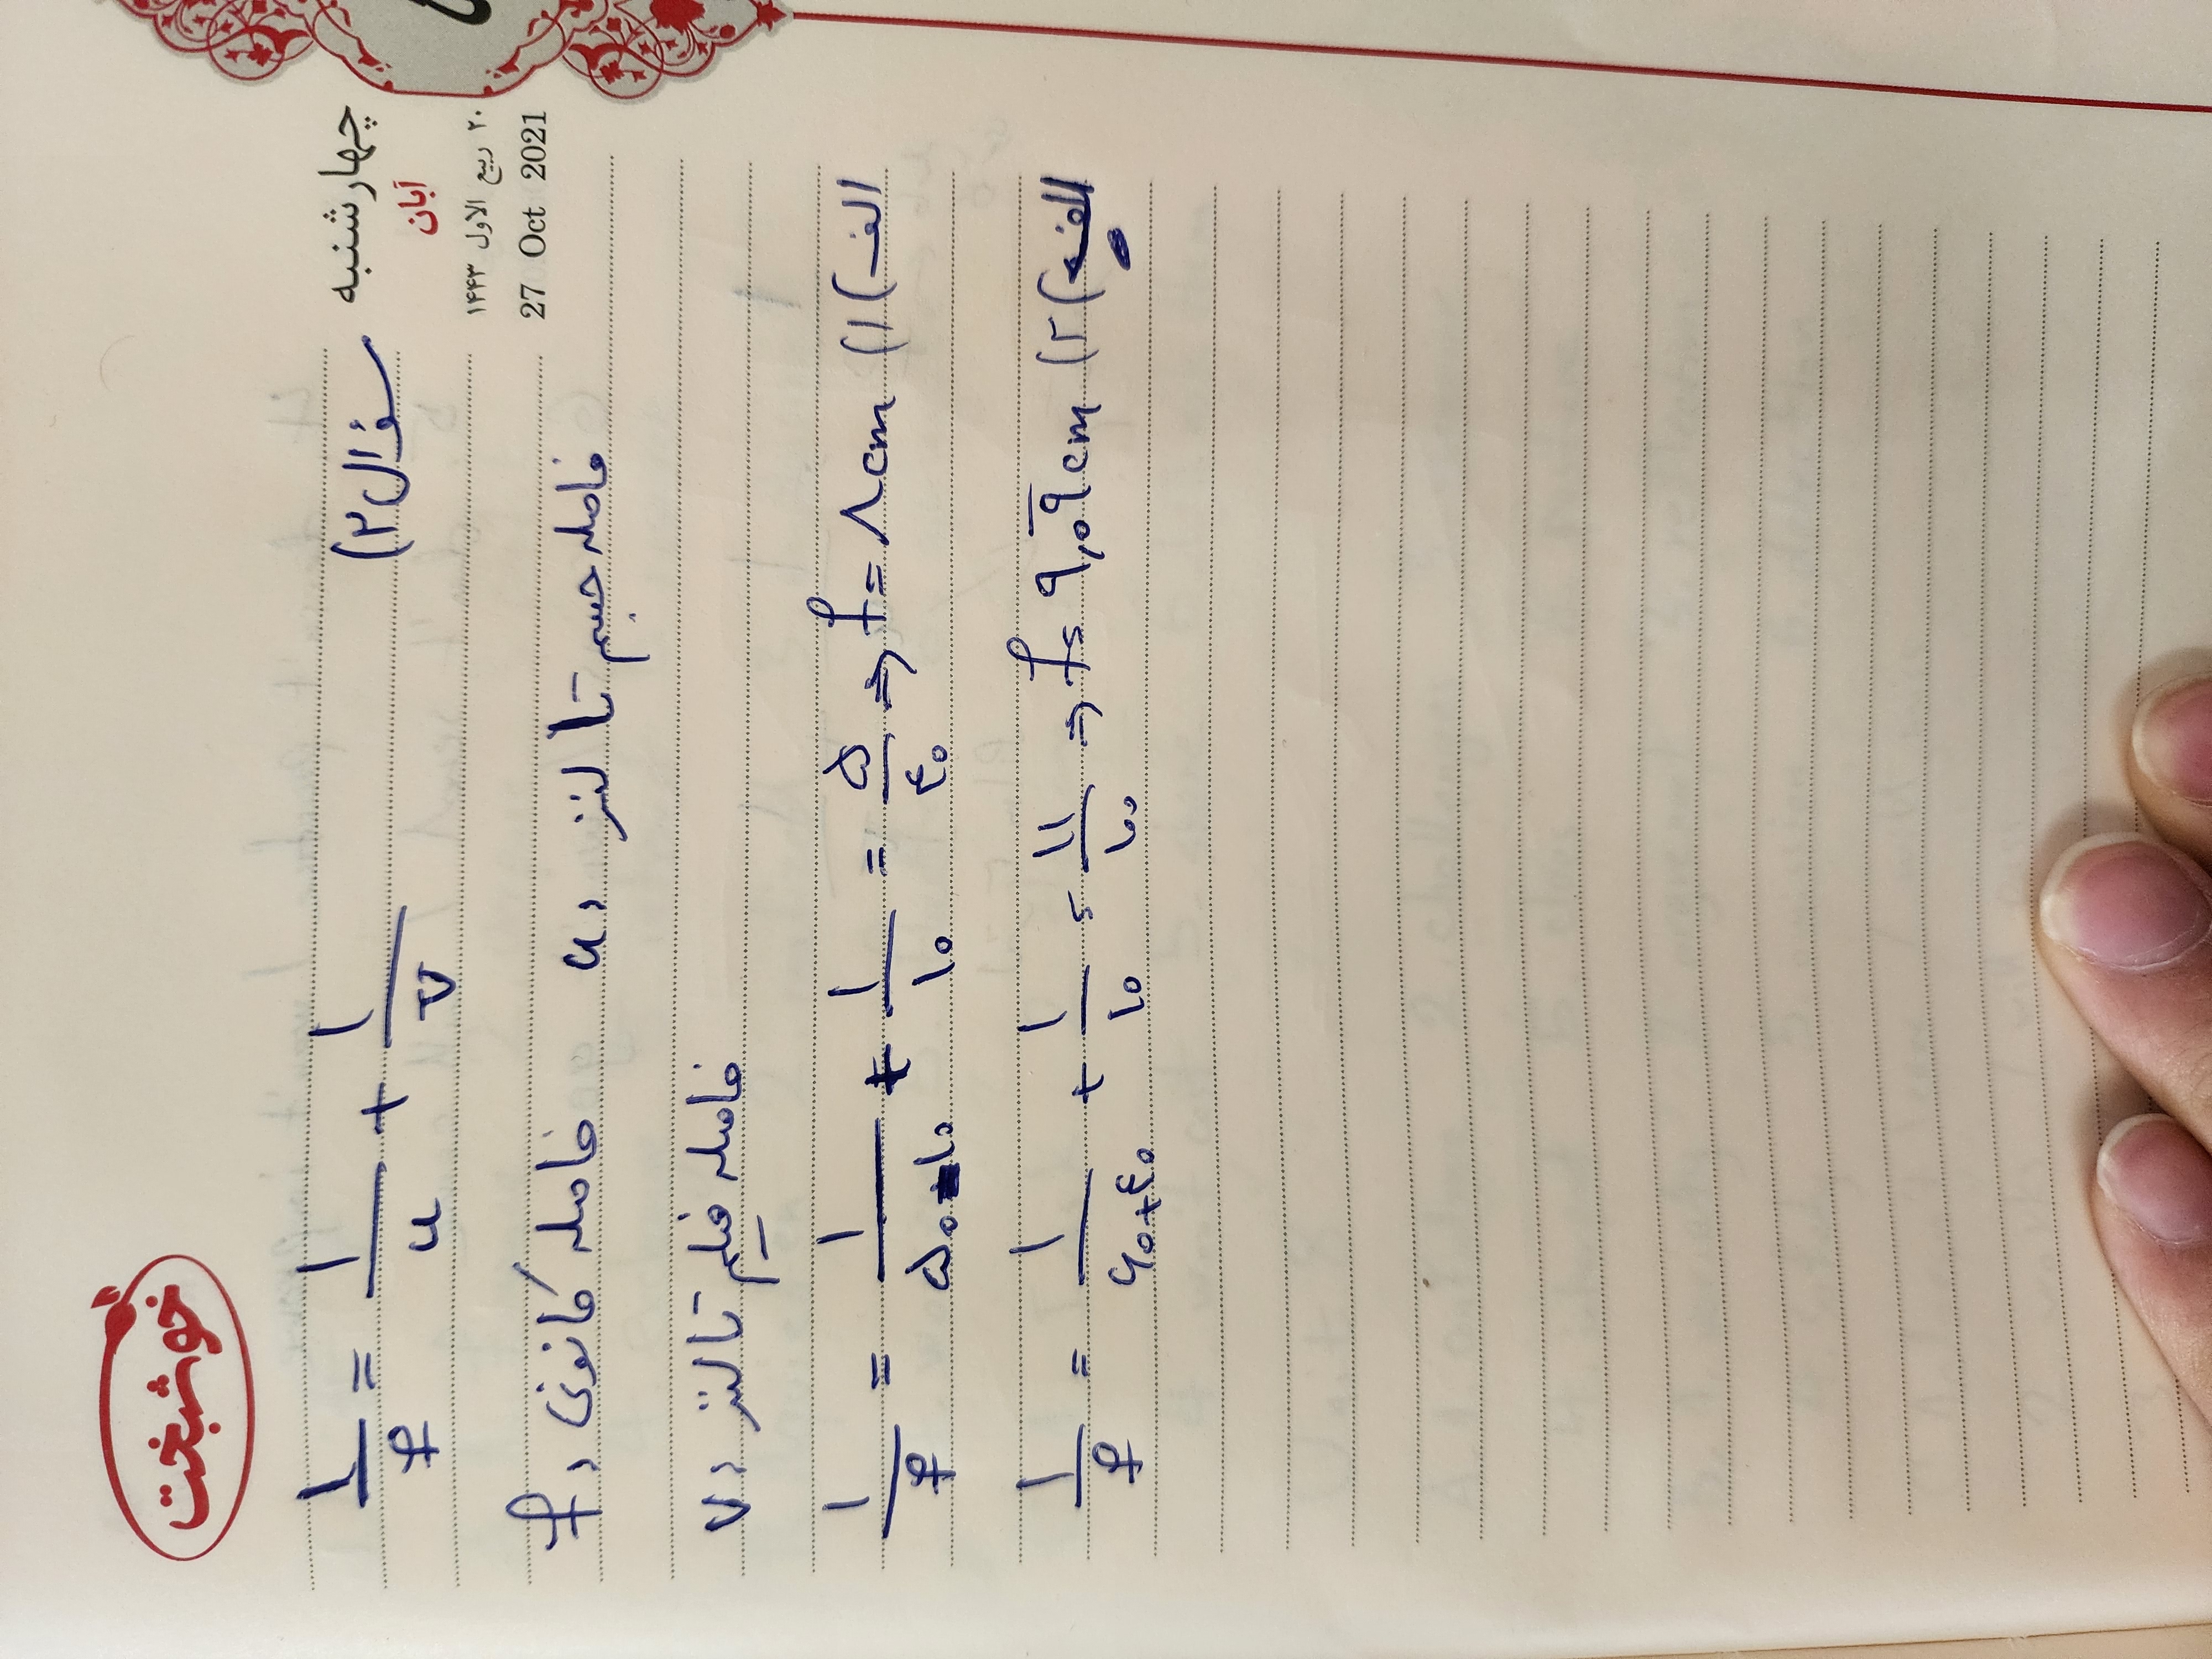 خوشبخت
چهارشنبه
آبان
۲۰ ربیع الاول ۱۴۴۳
27 Oct 2021
سؤال ۲)
1/f = 1/u + 1/v
f: فاصله کانونی u: فاصله جسم تا لنز
v: فاصله فیلم تا لنز
الف) ۱) 1/f = ۱/۵۰-۱۰ + ۱/۱۰ = ۵/۴۰ ⇒ f = ۸cm
الف) ۲) 1/f = ۱/۶۰+۴۰ + ۱/۱۰ = ۱۱/۱۰۰ ⇒ f = ۹,۰۹̅cm